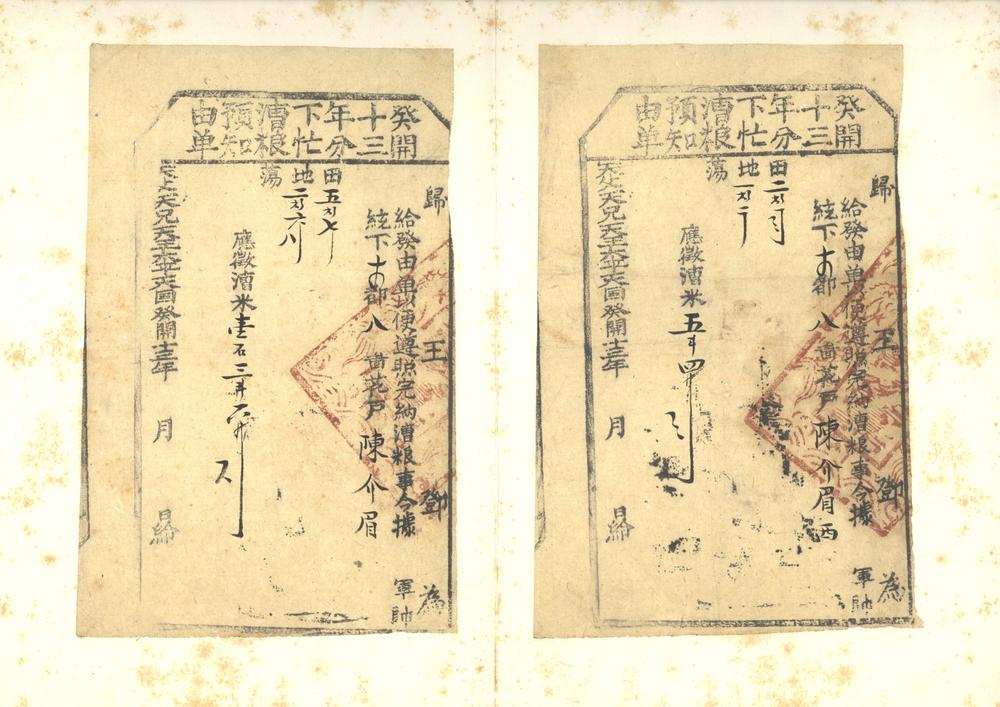 癸開
十三
年分
下忙
漕粮
預知
由单
歸 王 鄧 為
給發由单以便遵照完納漕粮事今據 軍帥
統下 郡 八 啚花户 陳介眉 西
田
地
蕩
應徵漕米五斗四升
天父天兄天王太平天国癸開十三年 月 日給
癸開
十三
年分
下忙
漕粮
預知
由单
歸 王 鄧 為
給發由单以便遵照完納漕粮事今據 軍帥
統下 郡 八 啚花户 陳介眉
田
地
蕩
應徵漕米壹石三斗六升
天父天兄天王太平天国癸開十三年 月 日給